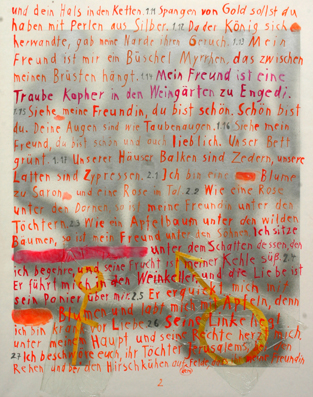 und dein Hals in den Ketten. 1.11 Spangen von Gold sollst du
haben mit Perlen aus Silber. 1.12 Da der König sich
herwandte, gab meine Narde ihren Geruch. 1.13 Mein
Freund ist mir ein Büschel Myrrhen, das zwischen
meinen Brüsten hängt. 1.14 Mein Freund ist eine
Traube Kopher in den Weingärten zu Engedi.
1.15 Siehe meine Freundin, du bist schön. Schön bist
du. Deine Augen sind wie Taubenaugen. 1.16 Siehe mein
Freund, du bist schön und auch lieblich. Unser Bett
grünt. 1.17 Unserer Häuser Balken sind Zedern, unsere
Latten sind Zypressen. 2.1 Ich bin eine Blume
zu Saron und eine Rose im Tal. 2.2 Wie eine Rose
unter den Dornen, so ist meine Freundin unter den
Töchtern. 2.3 Wie ein Apfelbaum unter den wilden
Bäumen, so ist mein Freund unter den Söhnen. Ich sitze
unter dem Schatten dessen, den
ich begehre, und seine Frucht ist meiner Kehle süß. 2.4
Er führt mich in den Weinkeller und die Liebe ist
sein Panier über mir. 2.5 Er erquickt mich mit
Blumen und labt mich mit Äpfeln, denn
ich bin krank vor Liebe. 2.6 Seine Linke liegt
unter meinem Haupt und seine Rechte herzt mich.
2.7 Ich beschwöre euch, ihr Töchter Jerusalems, bei den
Rehen und bei den Hirschkühen auf dem Felde, dass ihr meine Freundin
2